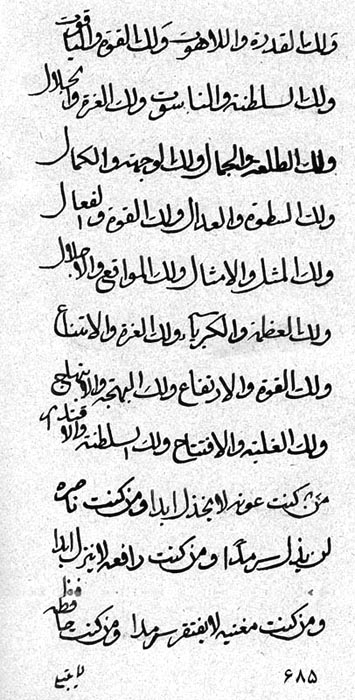 ولك القدرة واللاهوت ولك القوة والياقوت
ولك السلطنة والناسوت ولك العزة والجلال
ولك الطلعة والجمال ولك الوجهة والكمال
ولك السطوة والعدال ولك القوة والفعال
ولك المثل والامثال ولك المواقع والاجلال
ولك العظمة والكبرياء ولك العزة والامتناع
ولك القوة والارتفاع ولك البهجة والابتهاج
ولك الغلبة والافتتاح ولك السلطنة والاقتدار
من كنت عونه لا يخذل ابدا ومن كنت ناصره
لن يذل سرمدا ومن كنت رافعه لا ينزل ابدا
ومن كنت مغنيه لا يفتقر سرمدا ومن كنت حافظه
۶۸۵